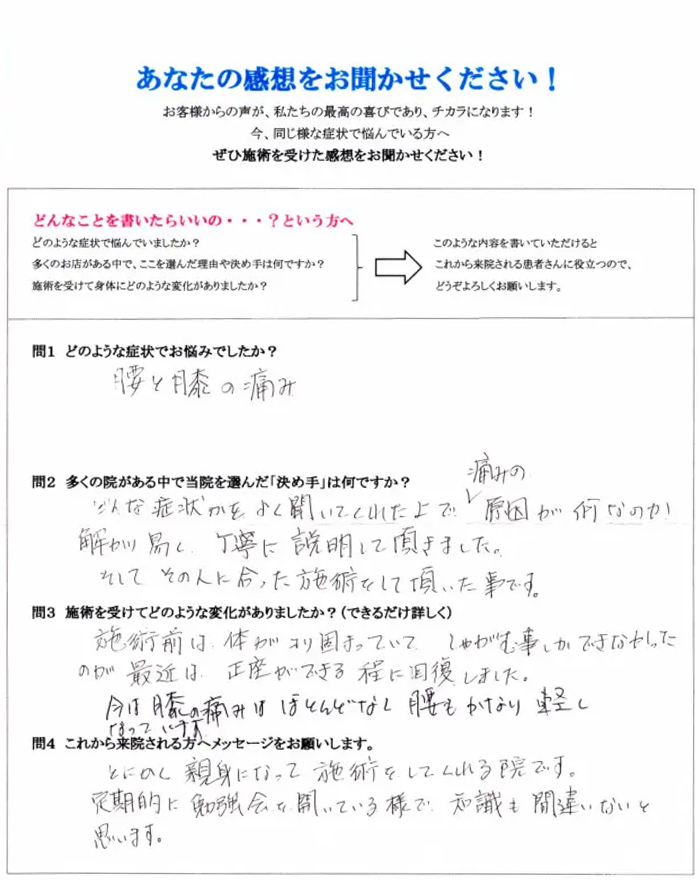 あなたの感想をお聞かせください！
お客様からの声が、私たちの最高の喜びであり、チカラになります！
今、同じ様な症状で悩んでいる方へ
ぜひ施術を受けた感想をお聞かせください！
どんなことを書いたらいいの・・・？という方へ
どのような症状で悩んでいましたか？
多くのお店がある中で、ここを選んだ理由や決め手は何ですか？
施術を受けて身体にどのような変化がありましたか？
このような内容を書いていただけると
これから来院される患者さんに役立つので、
どうぞよろしくお願いします。
問1 どのような症状でお悩みでしたか？
腰と膝の痛み
問2 多くの院がある中で当院を選んだ「決め手」は何ですか？
どんな症状かをよく聞いてくれた上で、痛みの原因が何なのか
解かり易く、丁寧に説明して頂きました。
そしてその人に合った施術をして頂いた事です。
問3 施術を受けてどのような変化がありましたか？（できるだけ詳しく）
施術前は、体がコリ固まっていて、しゃがむ事しかできなかった
のが最近は、正座ができる程に回復しました。
今は膝の痛みはほとんどなく腰もかなり軽く
なっています
問4 これから来院される方へメッセージをお願いします。
とにかく親身になって施術をしてくれる院です。
定期的に勉強会を開いている様で、知識も間違いないと
思います。